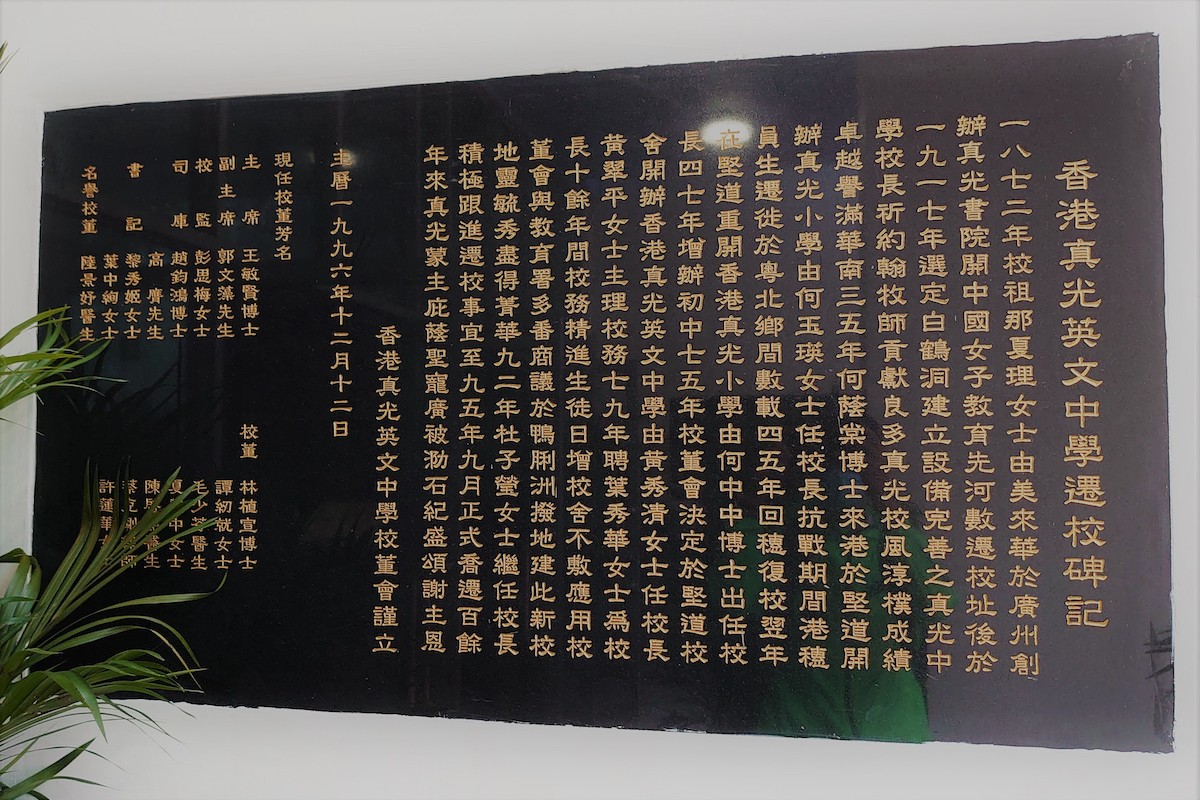 香港真光英文中學遷校碑記
一八七二年校祖那夏理女士由美來華於廣州創
辦真光書院開中國女子教育先河數遷校址後於
一九一七年選定白鶴洞建立設備完善之真光中
學校長祈約翰牧師貢獻良多真光校風淳樸成績
卓越譽滿華南三五年何蔭棠博士來港於堅道開
辦真光小學由何玉瑛女士任校長抗戰期間港穗
員生遷徙於粵北鄉間數載四五年回穗復校翌年
在堅道重開香港真光小學由何中中博士出任校
長四七年增辦初中七五年校董會決定於堅道校
舍開辦香港真光英文中學由黃秀清女士任校長
黃翠平女士主理校務七九年聘葉秀華女士爲校
長十餘年間校務精進生徒日增校舍不敷應用校
董會與教育署多番商議於鴨脷洲撥地建此新校
地靈毓秀盡得菁華九二年杜子瑩女士繼任校長
積極跟進遷校事宜至九五年九月正式喬遷百餘
年來真光蒙主庇蔭聖寵廣被泐石紀盛頌謝主恩
香港真光英文中學校董會謹立
主曆一九九六年十二月十二日
現任校董芳名
主席 王敏賢博士 校董 林植宣博士
副主席 郭文藻先生 譚紉就女士
校監 彭思梅女士 毛少芬醫生
司庫 趙鈞鴻博士 夏中女士
書記 高膺先生 陳醫生
黎秀姬女士 蔡
葉中絢女士 許蓮華
名譽校董 陸景妤醫生